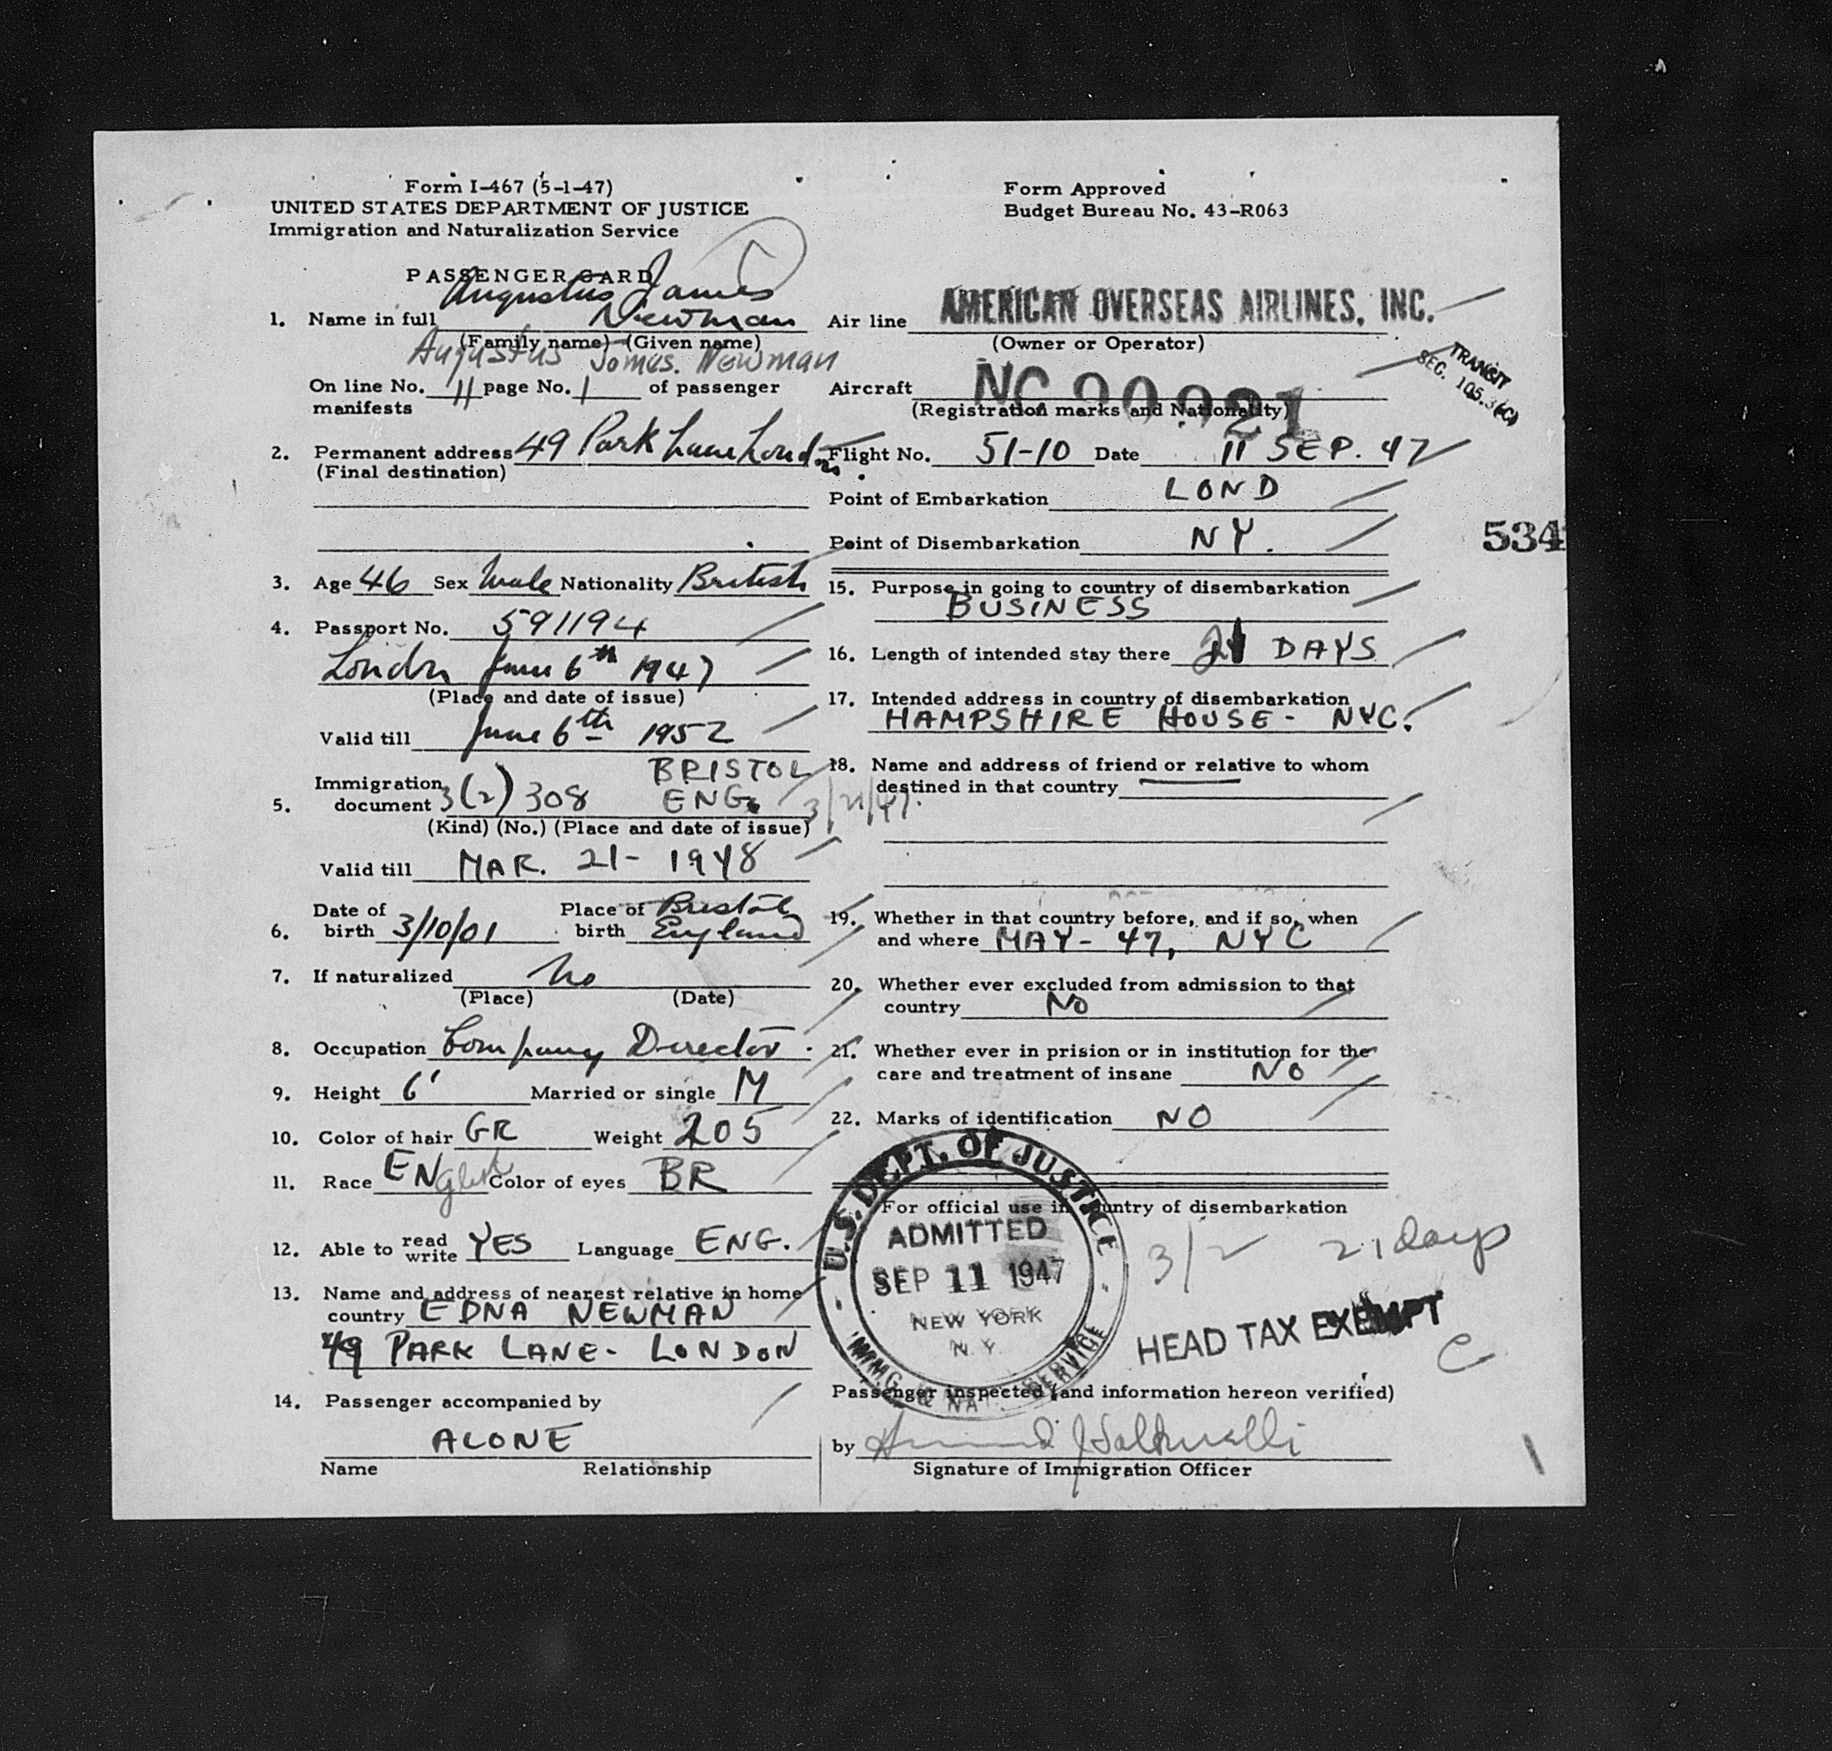 Form I-467 (5-1-47)
UNITED STATES DEPARTMENT OF JUSTICE
Immigration and Naturalization Service
Form Approved
Budget Bureau No. 43-R063
PASSENGER CARD
Augustus James
1. Name in full Newman
(Family name) (Given name)
Augustus James. Newman
On line No. 11 page No. 1 of passenger
manifests
2. Permanent address 49 Park Lane London
(Final destination)
3. Age 46 Sex Male Nationality British
4. Passport No. 591194
London June 6th 1947
(Place and date of issue)
Valid till June 6th 1952
BRISTOL
Immigration
5. document 3(2) 308 ENG. 3/21/47.
(Kind) (No.) (Place and date of issue)
Valid till MAR. 21- 1948
Date of Place of Bristol
6. birth 3/10/01 birth England
7. If naturalized No
(Place) (Date)
8. Occupation Company Director.
9. Height 6' Married or single M
10. Color of hair GR Weight 205
11. Race ENglish Color of eyes BR
12. Able to read write YES Language ENG.
13. Name and address of nearest relative in home
country EDNA NEWMAN
49 PARK LANE- LONDON
14. Passenger accompanied by
ALONE
Name Relationship
Air line AMERICAN OVERSEAS AIRLINES, INC.
(Owner or Operator)
TRANSIT
SEC. 105.3(C)
Aircraft NC 90921
(Registration marks and Nationality)
Flight No. 51-10 Date 11 SEP. 47
Point of Embarkation LOND
Point of Disembarkation NY.
534
15. Purpose in going to country of disembarkation
BUSINESS
16. Length of intended stay there 21 DAYS
17. Intended address in country of disembarkation
HAMPSHIRE HOUSE- NYC.
18. Name and address of friend or relative to whom
destined in that country
19. Whether in that country before, and if so, when
and where MAY- 47, NYC
20. Whether ever excluded from admission to that
country NO
21. Whether ever in prision or in institution for the
care and treatment of insane NO
22. Marks of identification NO
For official use in country of disembarkation
U.S. DEPT. OF JUSTICE
ADMITTED
SEP 11 1947
NEW YORK
N.Y.
IMMG. & NAT. SERVICE
3/2 21 days
HEAD TAX EXEMPT
C
Passenger inspected (and information hereon verified)
by
Signature of Immigration Officer